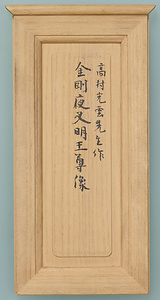 高村光雲先生作
金剛夜叉明王尊像